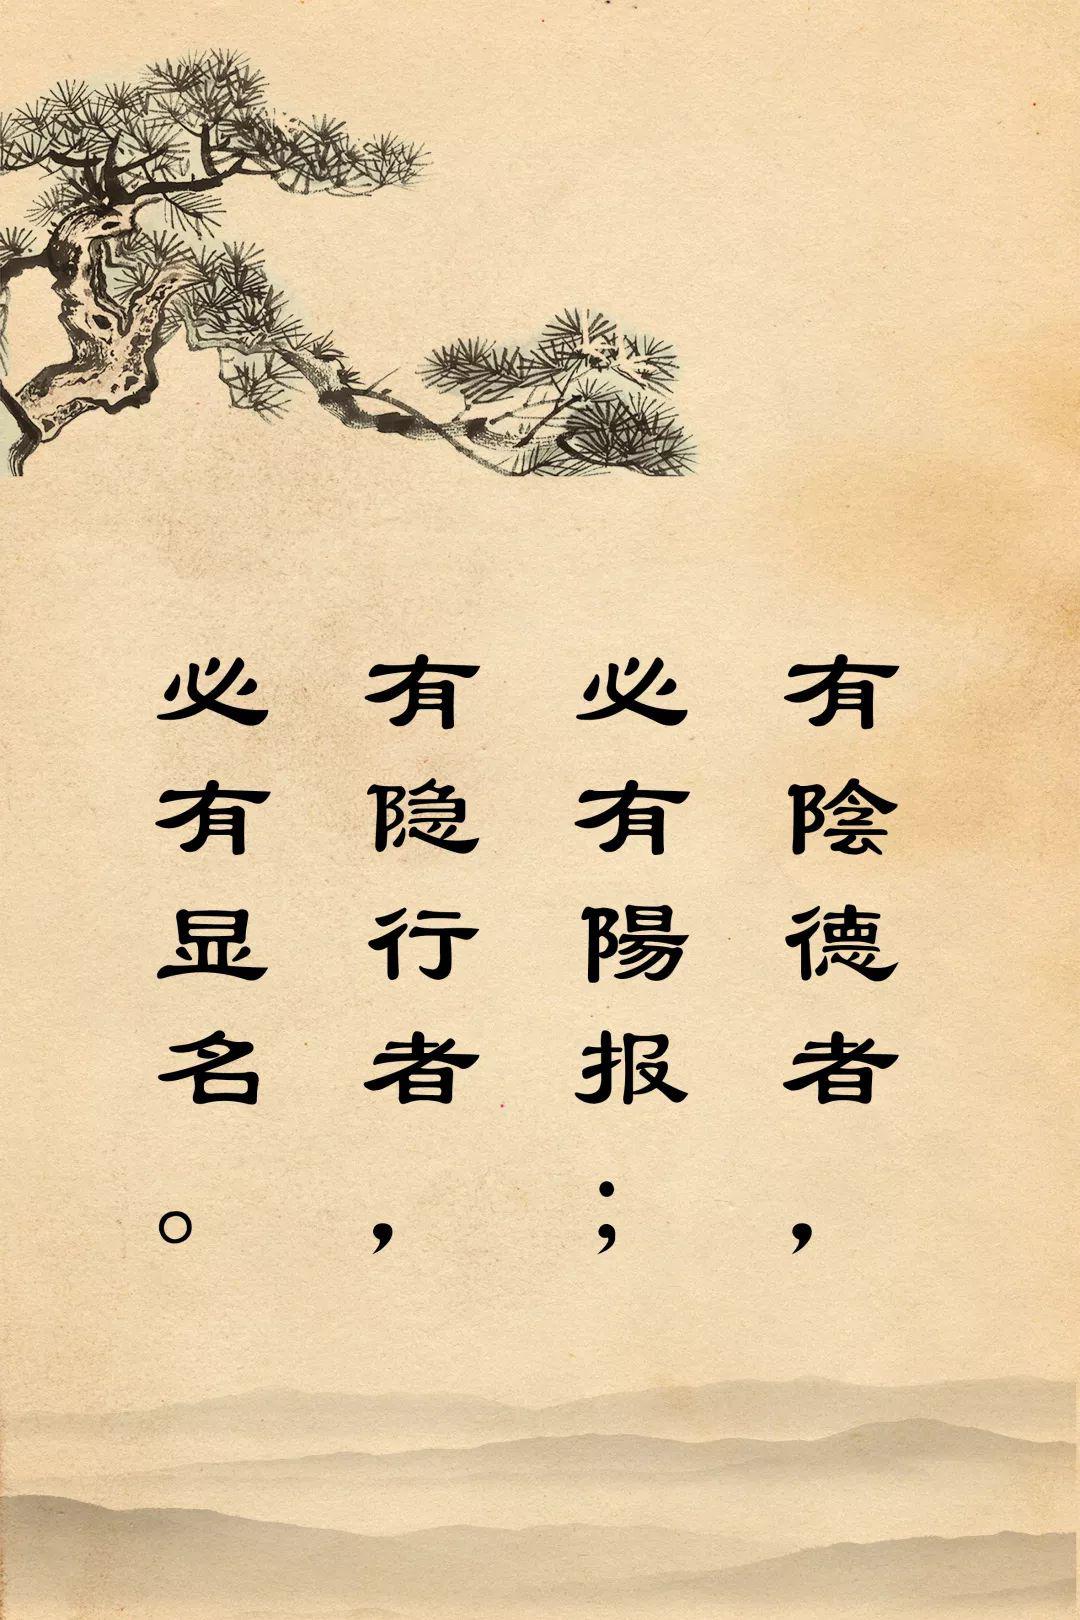 有陰德者，
必有陽报；
有隐行者，
必有显名。